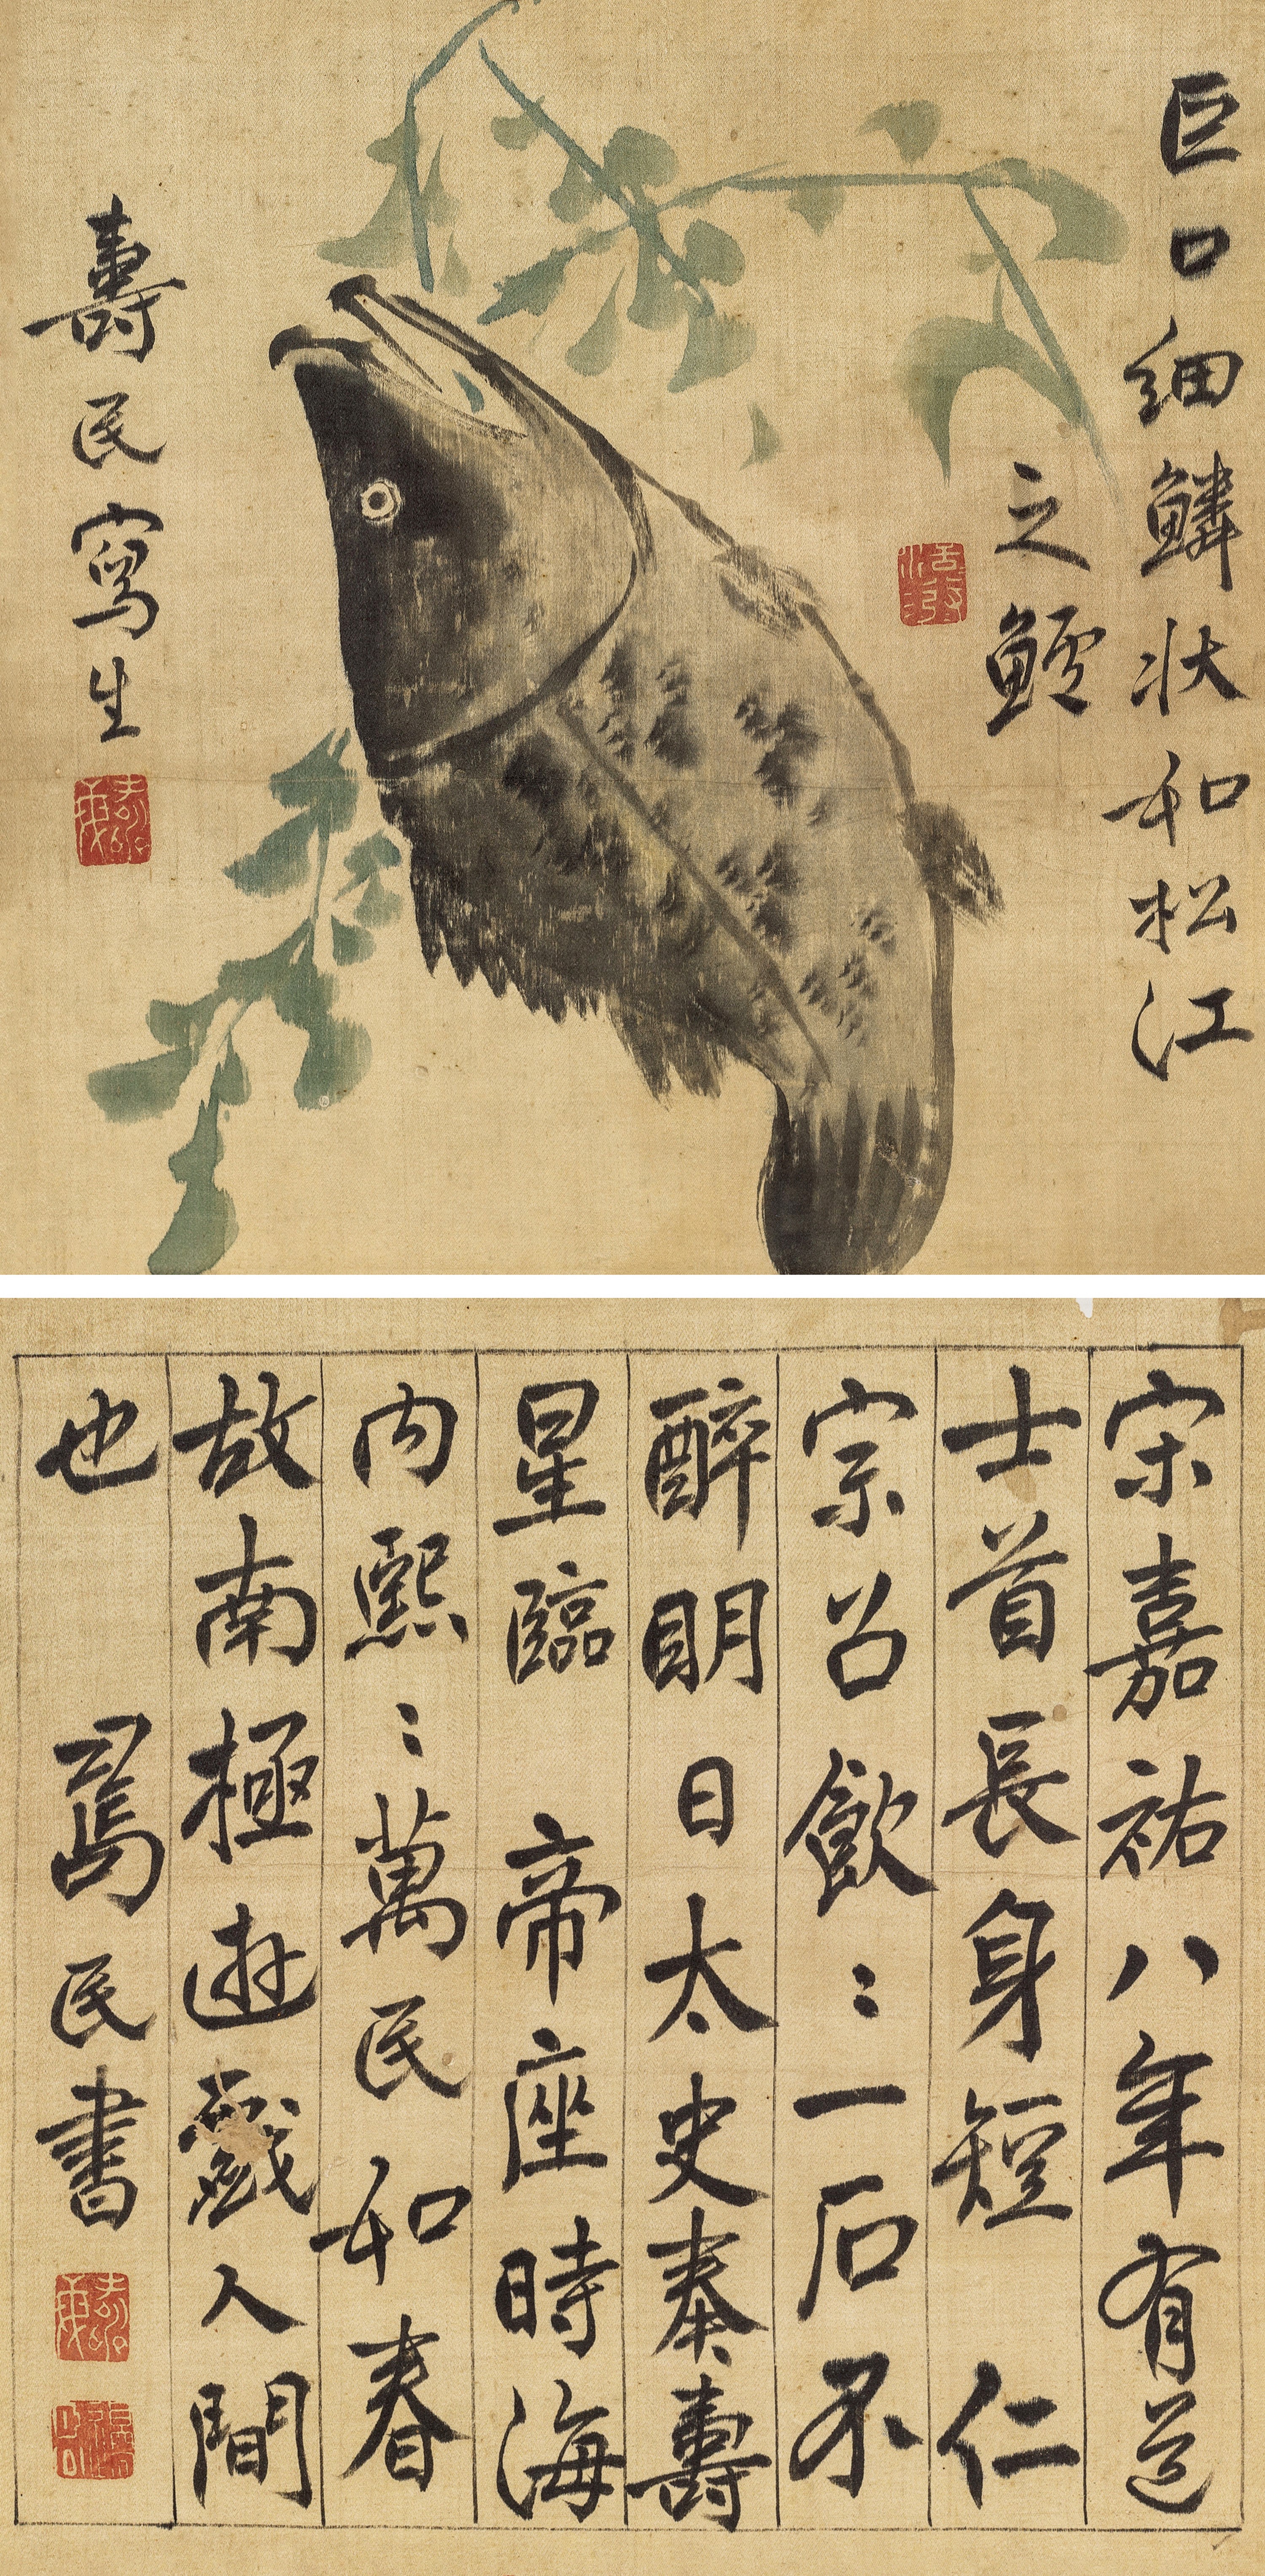 巨口細鱗状和松江
之鱸
壽民寫生
宋嘉祐八年有道
士首長身短 仁
宗召飲〻一石不
醉眀日太史奏壽
星臨 帝座時海
内熙〻萬民和春
故南極遊戲人間
也 民書